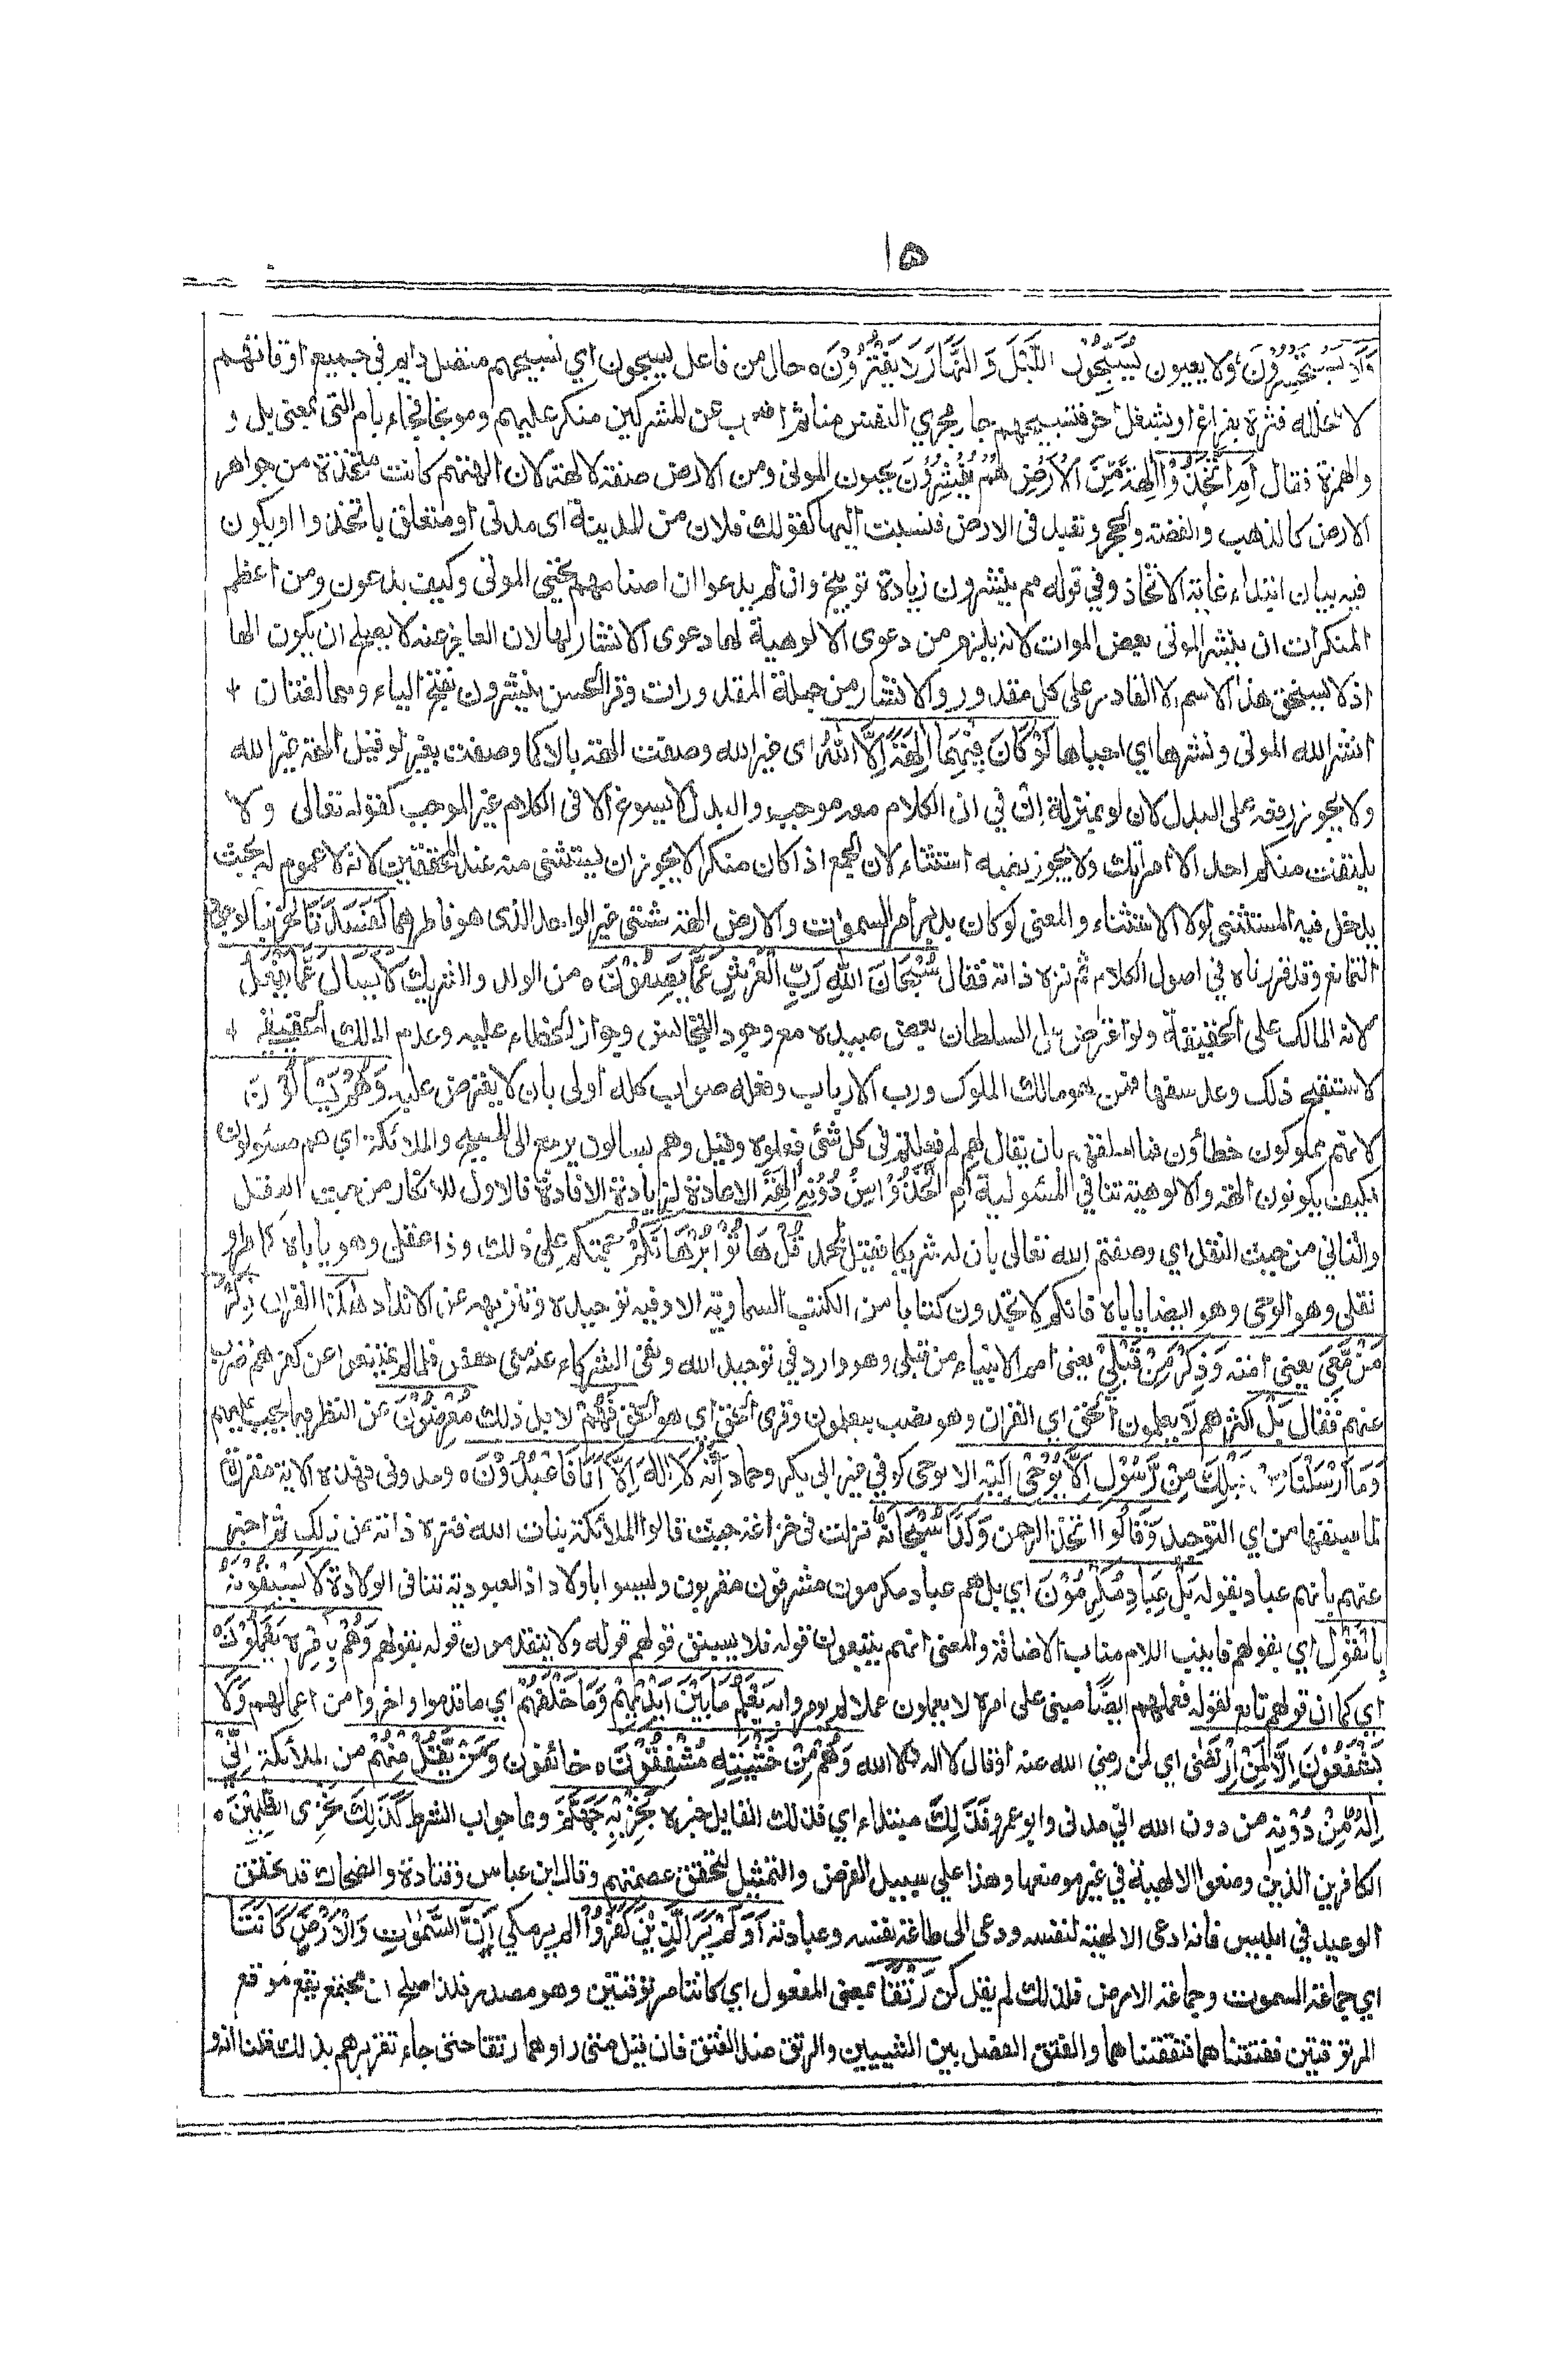 ١٥
وَلَا يَسْتَحْسِرُوْنَ ولا يعيون يُسَبِّحُوْنَ اللَّيْلَ وَ النَّهَارَ لَا يَفْتُرُوْنَ ه حال من فاعل يسبحون اي تسبيحهم متصل دايم في جميع اوقاتهم
لا تخلله فترة بفراغ او بشغل اخر فتسبيحهم جار مجري النفس منا ثم اضرب عن المشركين منكرا عليهم وموبخا فجاء بام التى بمعنى بل و
والهمزة فقال اَمِ اتَّخَذُوْا اٰلِهَةً مِّنَ الْاَرْضِ هُمْ يُنْشِرُوْنَ يحيون الموتى ومن الارض صفة لالهة لان الهتهم كانت متخذة من جواهر
الارض كالذهب والفضة والحجر وتعبد فى الارض فنسبت اليها كقولك فلان من المدينة اى مدنى او متعلق باتخذوا اويكون
فيه بيان ابتداء غاية الاتخاذ وفي قوله هم ينشرون زيادة توبيخ وان لم يدعوا ان اصنامهم تحيي الموتى وكيف يدعون ومن اعظم
المنكرات ان ينشر الموتى بعض الموات لانه يلزم من دعوى الالوهية لها دعوى الانشار لها لان العاجز عنه لا يصح ان يكون الها
اذ لا يستحق هذا الاسم الا القادر على كل مقدور والانشار من جملة المقدورات وقرا الحسن ينشرون بفتح الياء وهما لغتان
انشر الله الموتى ونشرها اي احياها لَوْ كَانَ فِيْهِمَا اٰلِهَةٌ اِلَّا اللهُ اى غير الله وصفت الهة بالا كما وصفت بغير لو قيل الهة غير الله
ولا يجوز رفعه على البدل لان لو بمنزلة ان في ان الكلام معه موجب والبدل لا يسوغ الا فى الكلام غير الموجب كقوله تعالى ولا
يلتفت منكم احد الا امراتك ولا يجوز نصبه استثناء لان الجمع اذا كان منكرا لا يجوز ان يستثنى منه عند المحققين لانه لا عموم له بحيث
يدخل فيه المستثنى لولا الاستثناء والمعنى لو كان يدبر امر السموات والارض الهة شتى غير الواحد الذى هو فاطرهما لَفَسَدَتَا لخربتا لوجود
التمانع وقد قررناه في اصول الكلام ثم نزه ذاته فقال سُبْحَانَ اللهِ رَبِّ الْعَرْشِ عَمَّا يَصِفُوْنَ ه من الولد والشريك لَا يُسْاَلُ عَمَّا يَفْعَلُ
لانه المالك على الحقيقة ولو اعترض على السلطان بعض عبيده مع وجود التجانس وجواز الخطاء عليه وعدم الملك الحقيقي
لاستقبح ذلك وعد سفها فمن هو مالك الملوك ورب الارباب وفعله صواب كله اولى بان لا يعترض عليه وَهُمْ يُسْاَلُوْنَ
لانهم مملوكون خطاؤن فما اخلقهم بان يقال لهم لم فعلتم في كل شئ فعلوه وقيل وهم يسالون يرجع الى المسيح والملائكة اي هم مسئولون
فكيف يكونون الهة والالوهية تنافي المسئولية اَمِ اتَّخَذُوْا مِنْ دُوْنِهٖ اٰلِهَةً الاعادة لزيادة الافادة فالاول للانكار من حيث العقل
والثاني من حيث النقل اي وصفتم الله تعالى بان له شريكا فقيل لمحمد قُلْ هَاتُوْا بُرْهَانَكُمْ حجتكم على ذلك وذا عقلى وهو ياباه كما مر او
نقلى وهو الوحى وهو ايضا ياباه فانكم لا تجدون كتابا من الكتب السماوية الا وفيه توحيده وتنزيهه عن الانداد هٰذَا القران ذِكْرُ
مَنْ مَّعِيَ يعنى امته وَذِكْرُ مَنْ قَبْلِيْ يعنى امم الانبياء من قبلى وهو وارد في توحيد الله ونفى الشركاء عنه فلما لم يمتنعوا عن كفرهم اضرب
عنهم فقال بَلْ اكثرهم لَا يعلمون الْحَقَّ اي القران وهو نصب بيعلمون وقرى الحق اي هو الحق فَهُمْ لاجل ذلك مُعْرِضُوْنَ عن النظر فيما يجب عليهم
وَمَا اَرْسَلْنَا مِنْ قَبْلِكَ مِنْ رَّسُوْلٍ اِلَّا يُوْحٰى اِلَيْهِ الا نوحى كوفي غير ابى بكر وحماد اَنَّهٗ لَا اِلٰهَ اِلَّا اَنَا فَاعْبُدُوْنِ ه وحدونى فهذه الاية مقررة
لما سبقها من اي التوحيد وَقَالُوا اتخذ الرحمن وَلَدًا سُبْحَانَهٗ نزلت فى خزاعة حيث قالوا الملائكة بنات الله فنزه ذاته عن ذلك ثم اخبر
عنهم بانهم عباد بقوله بَلْ عِبَادٌ مُّكْرَمُوْنَ اي بل هم عباد مكرمون مشرفون مقربون وليسوا باولاد اذ العبودية تنافى الولادة لَا يَسْبِقُوْنَهٗ
بِالْقَوْلِ اي بقولهم فانيب اللام مناب الاضافة والمعنى انهم يتبعون قوله فلا يسبق قولهم قوله ولا يتقدمون قوله بقولهم وَهُمْ بِاَمْرِهٖ يَعْمَلُوْنَ ه
اي كما ان قولهم تابع لقوله فعملهم ايضا مبنى على امره لا يعملون عملا لم يومروا به يَعْلَمُ مَا بَيْنَ اَيْدِيْهِمْ وَمَا خَلْفَهُمْ اي ما قدموا واخروا من اعمالهم وَلَا
يَشْفَعُوْنَ اِلَّا لِمَنِ ارْتَضٰى اي لمن رضي الله عنه او قال لا اله الا الله وَهُمْ مِّنْ خَشْيَتِهٖ مُشْفِقُوْنَ ه خائفون وَمَنْ يَّقُلْ مِنْهُمْ من الملائكة اِنِّيْ
اِلٰهٌ مِّنْ دُوْنِهٖ من دون الله اني مدنى وابو عمرو فَذٰلِكَ مبتداء اي فذلك القايل خبره نَجْزِيْهِ جَهَنَّمَ وهما جواب الشرط كَذٰلِكَ نَجْزِى الظّٰلِمِيْنَ ه
الكافرين الذين وضعوا الالهية في غير موضعها وهذا على سبيل الفرض والتمثيل لتحقق عصمتهم وقال ابن عباس وقتادة والضحاك قد تحقق
الوعيد في ابليس فانه ادعى الالهية لنفسه ودعى الى طاعة نفسه وعبادته اَوَلَمْ يَرَ الَّذِيْنَ كَفَرُوْا الم ير مكي اَنَّ السَّمٰوٰتِ وَالْاَرْضَ كَانَتَا
اي جماعة السموت وجماعة الارض فلذلك لم يقل كن رَتْقًا بمعنى المفعول اي كانتا مرتوقتين وهو مصدر فلذا صلح ان يقع موقع
المرتوقتين ففتقناهما فشققناهما والفتق الفصل بين الشييين والرتق ضد الفتق فان قيل متى راوهما رتقا حتى جاء تقريرهم بذلك قلنا انه و